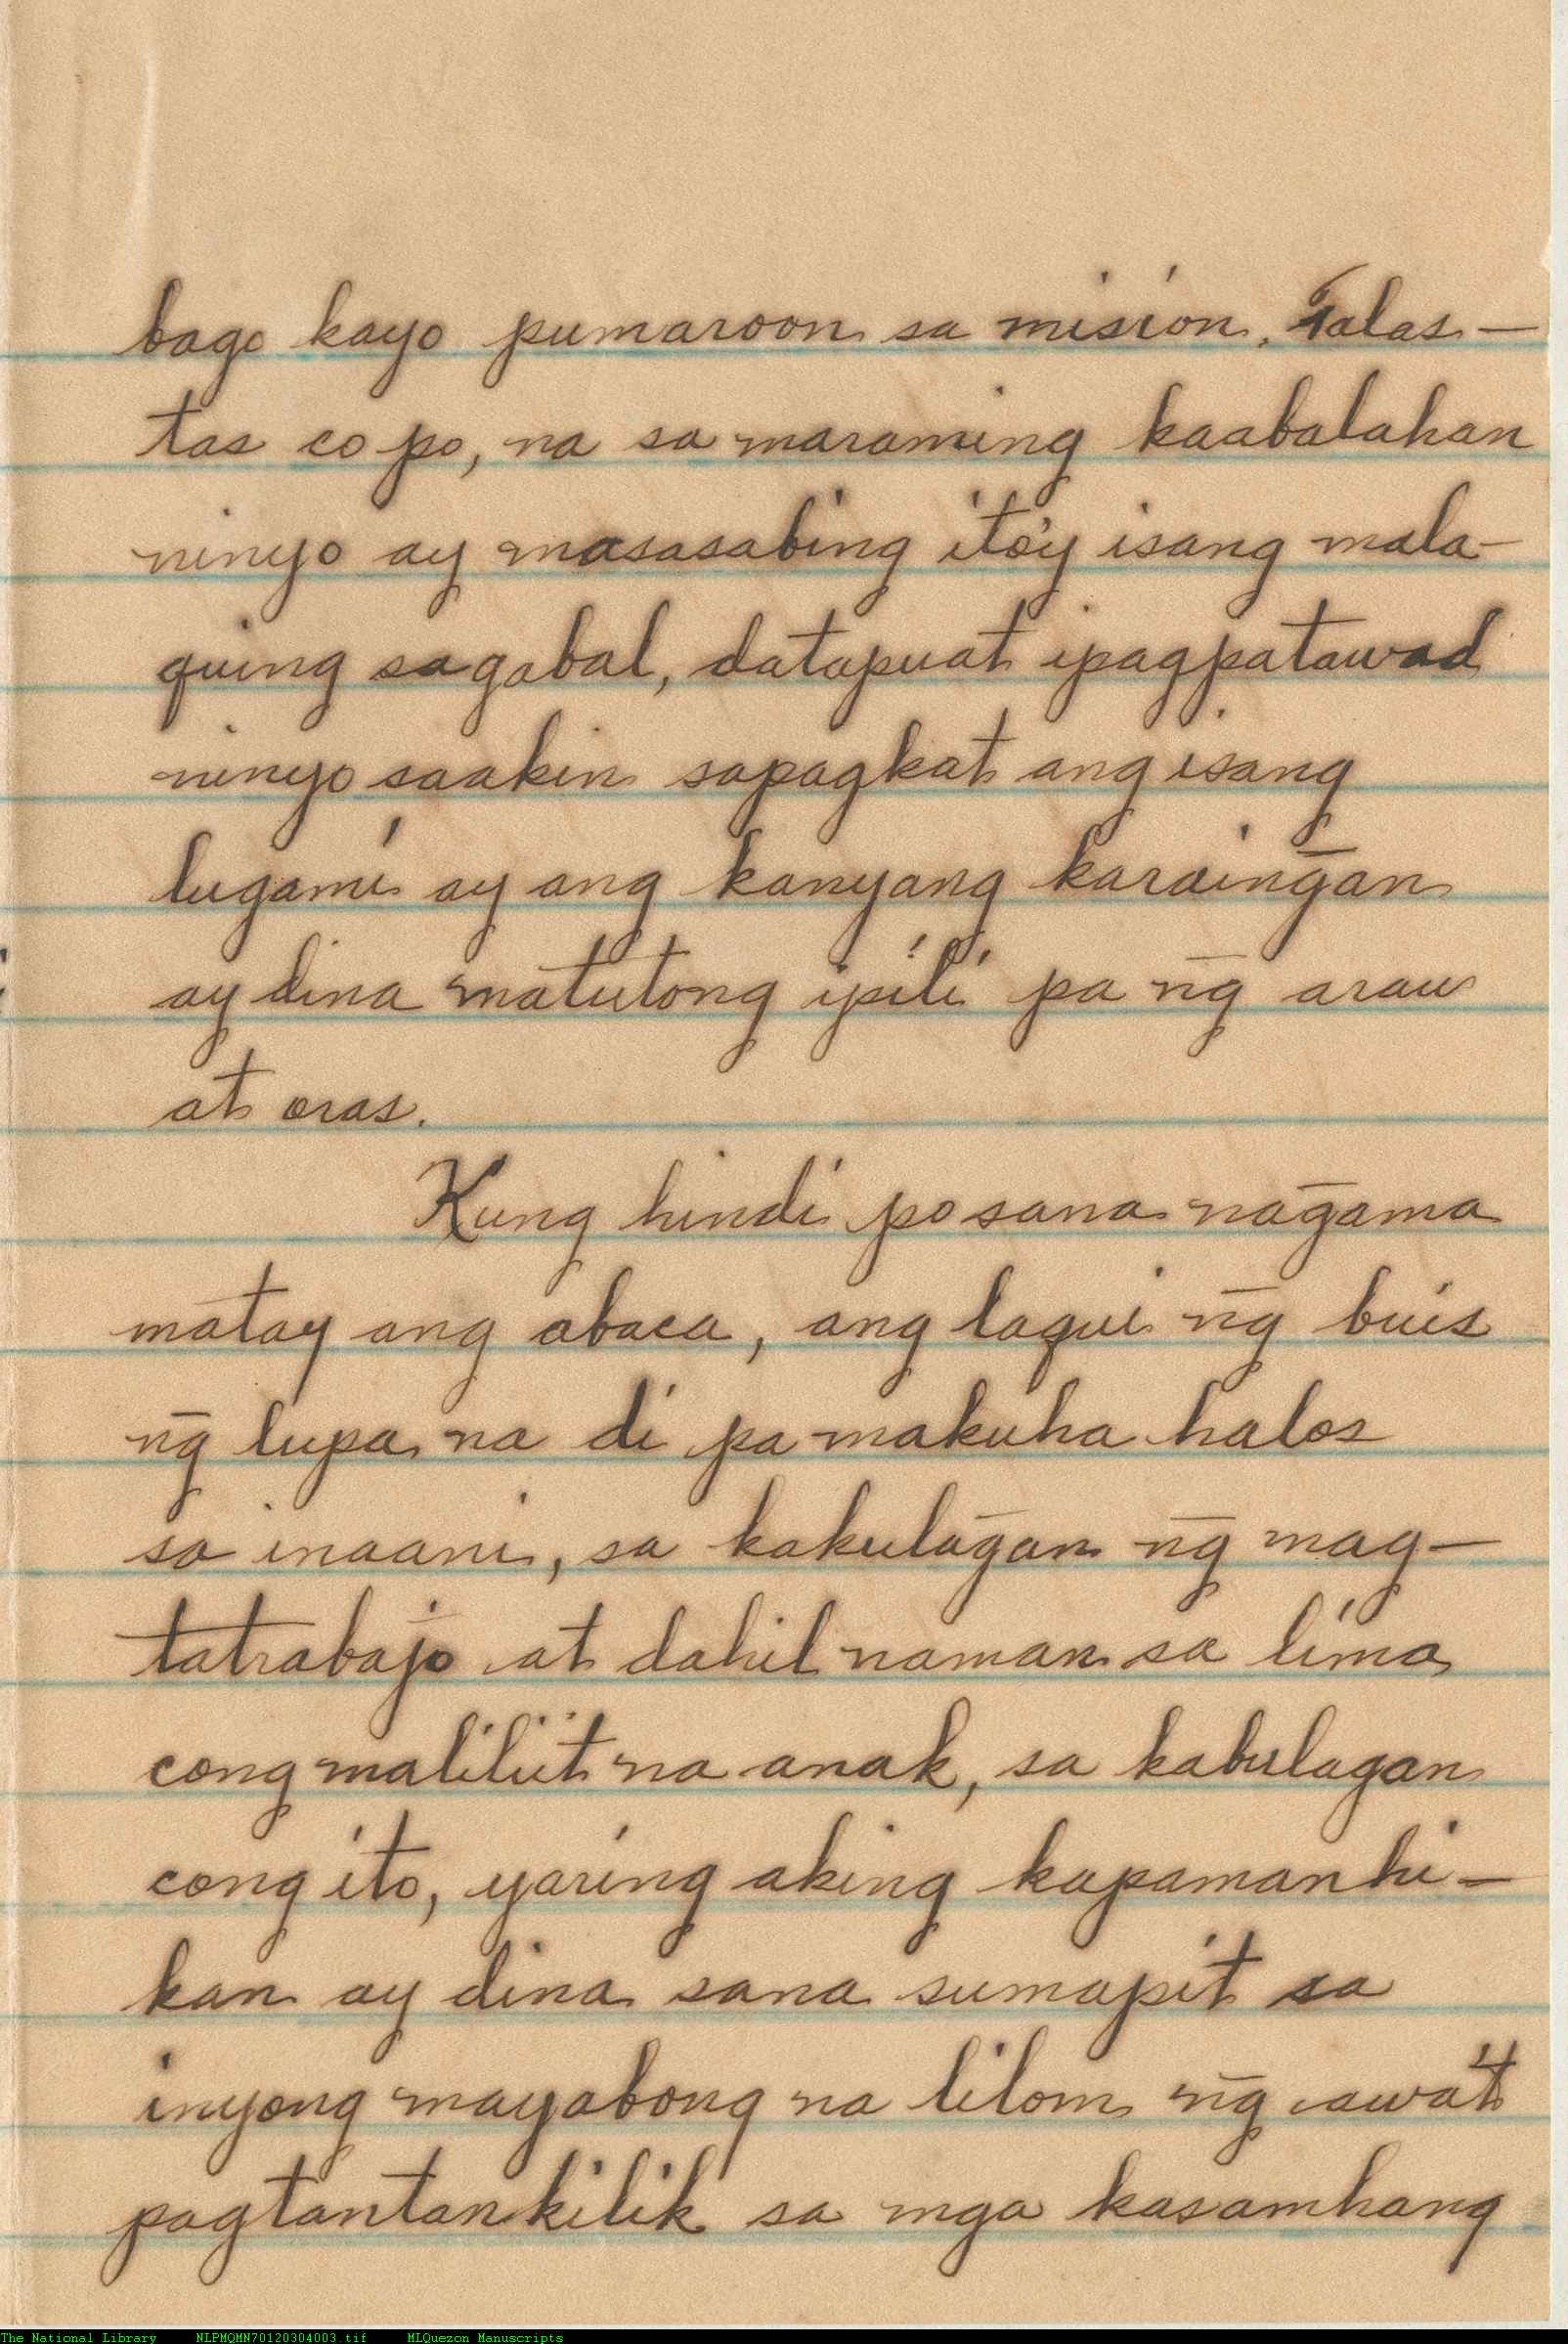 bago kayo pumaroon sa misión. Talas-
tas co po, na sa maraming kaabalahan
ninyo ay masasabing ito'y isang mala-
quing sagabal, datapuat ipagpatawad
ninyo saakin sapagkat ang isang
lugamí ay ang kanyang karaing̃an
ay dina matutong ipilí pa n̄g arau
at oras.
Kung hindi po sana nag̃ama
matay ang abaca, ang laqui n̄g buis
n̄g lupa na di pa makuha halos
sa inaani, sa kakulag̃an n̄g mag-
tatrabajo at dahil naman sa lima
cong maliliit na anak, sa kabulagan
cong ito, yaring aking kapamanhi-
kan ay dina sana sumapit sa
inyong mayabong na lilom n̄g awa't
pagtantankilik sa mga kasamhang
The National Library NLPMQMN70120304003.tif MLQuezon Manuscripts